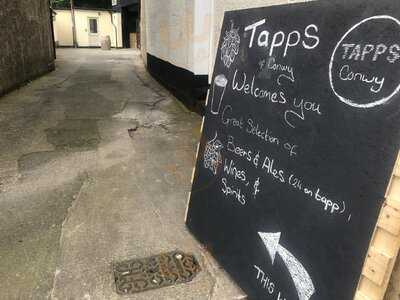 Tapps
of Conwy
TAPPS
Conwy
Welcomes you
Great Selection of
Beers & Ales (24 on tapp),
Wines, &
Spirits
THIS